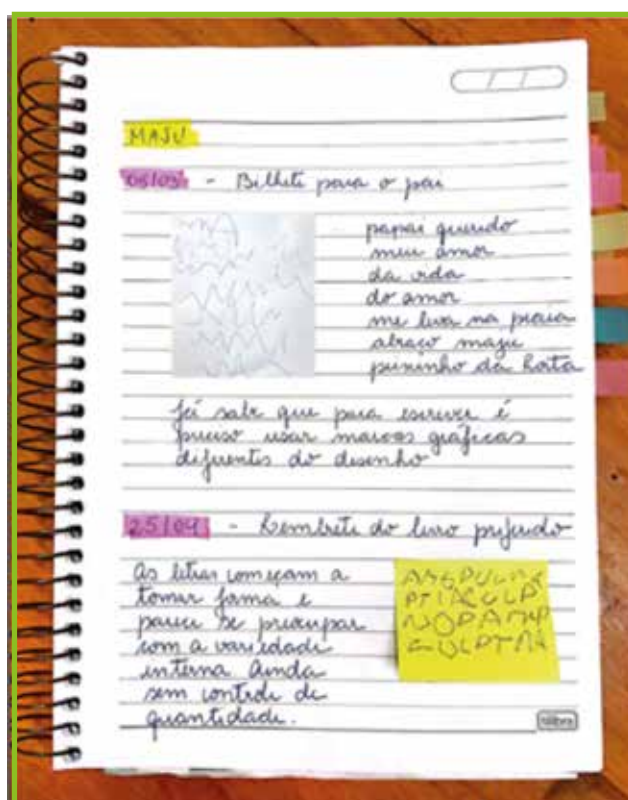 MAJU
05/03 - Bilhete para o pai
papai querido
meu amor
da vida
do amor
me leva na praia
abraço maju
peixinho da horta
Já sabe que para escrever é
preciso usar marcas gráficas
diferentes do desenho
25/04 - Lembrete do livro preferido
As letras começam a
tomar forma e
parece se preocupar
com a variedade
interna. Ainda
sem controle de
quantidade.
tilibra